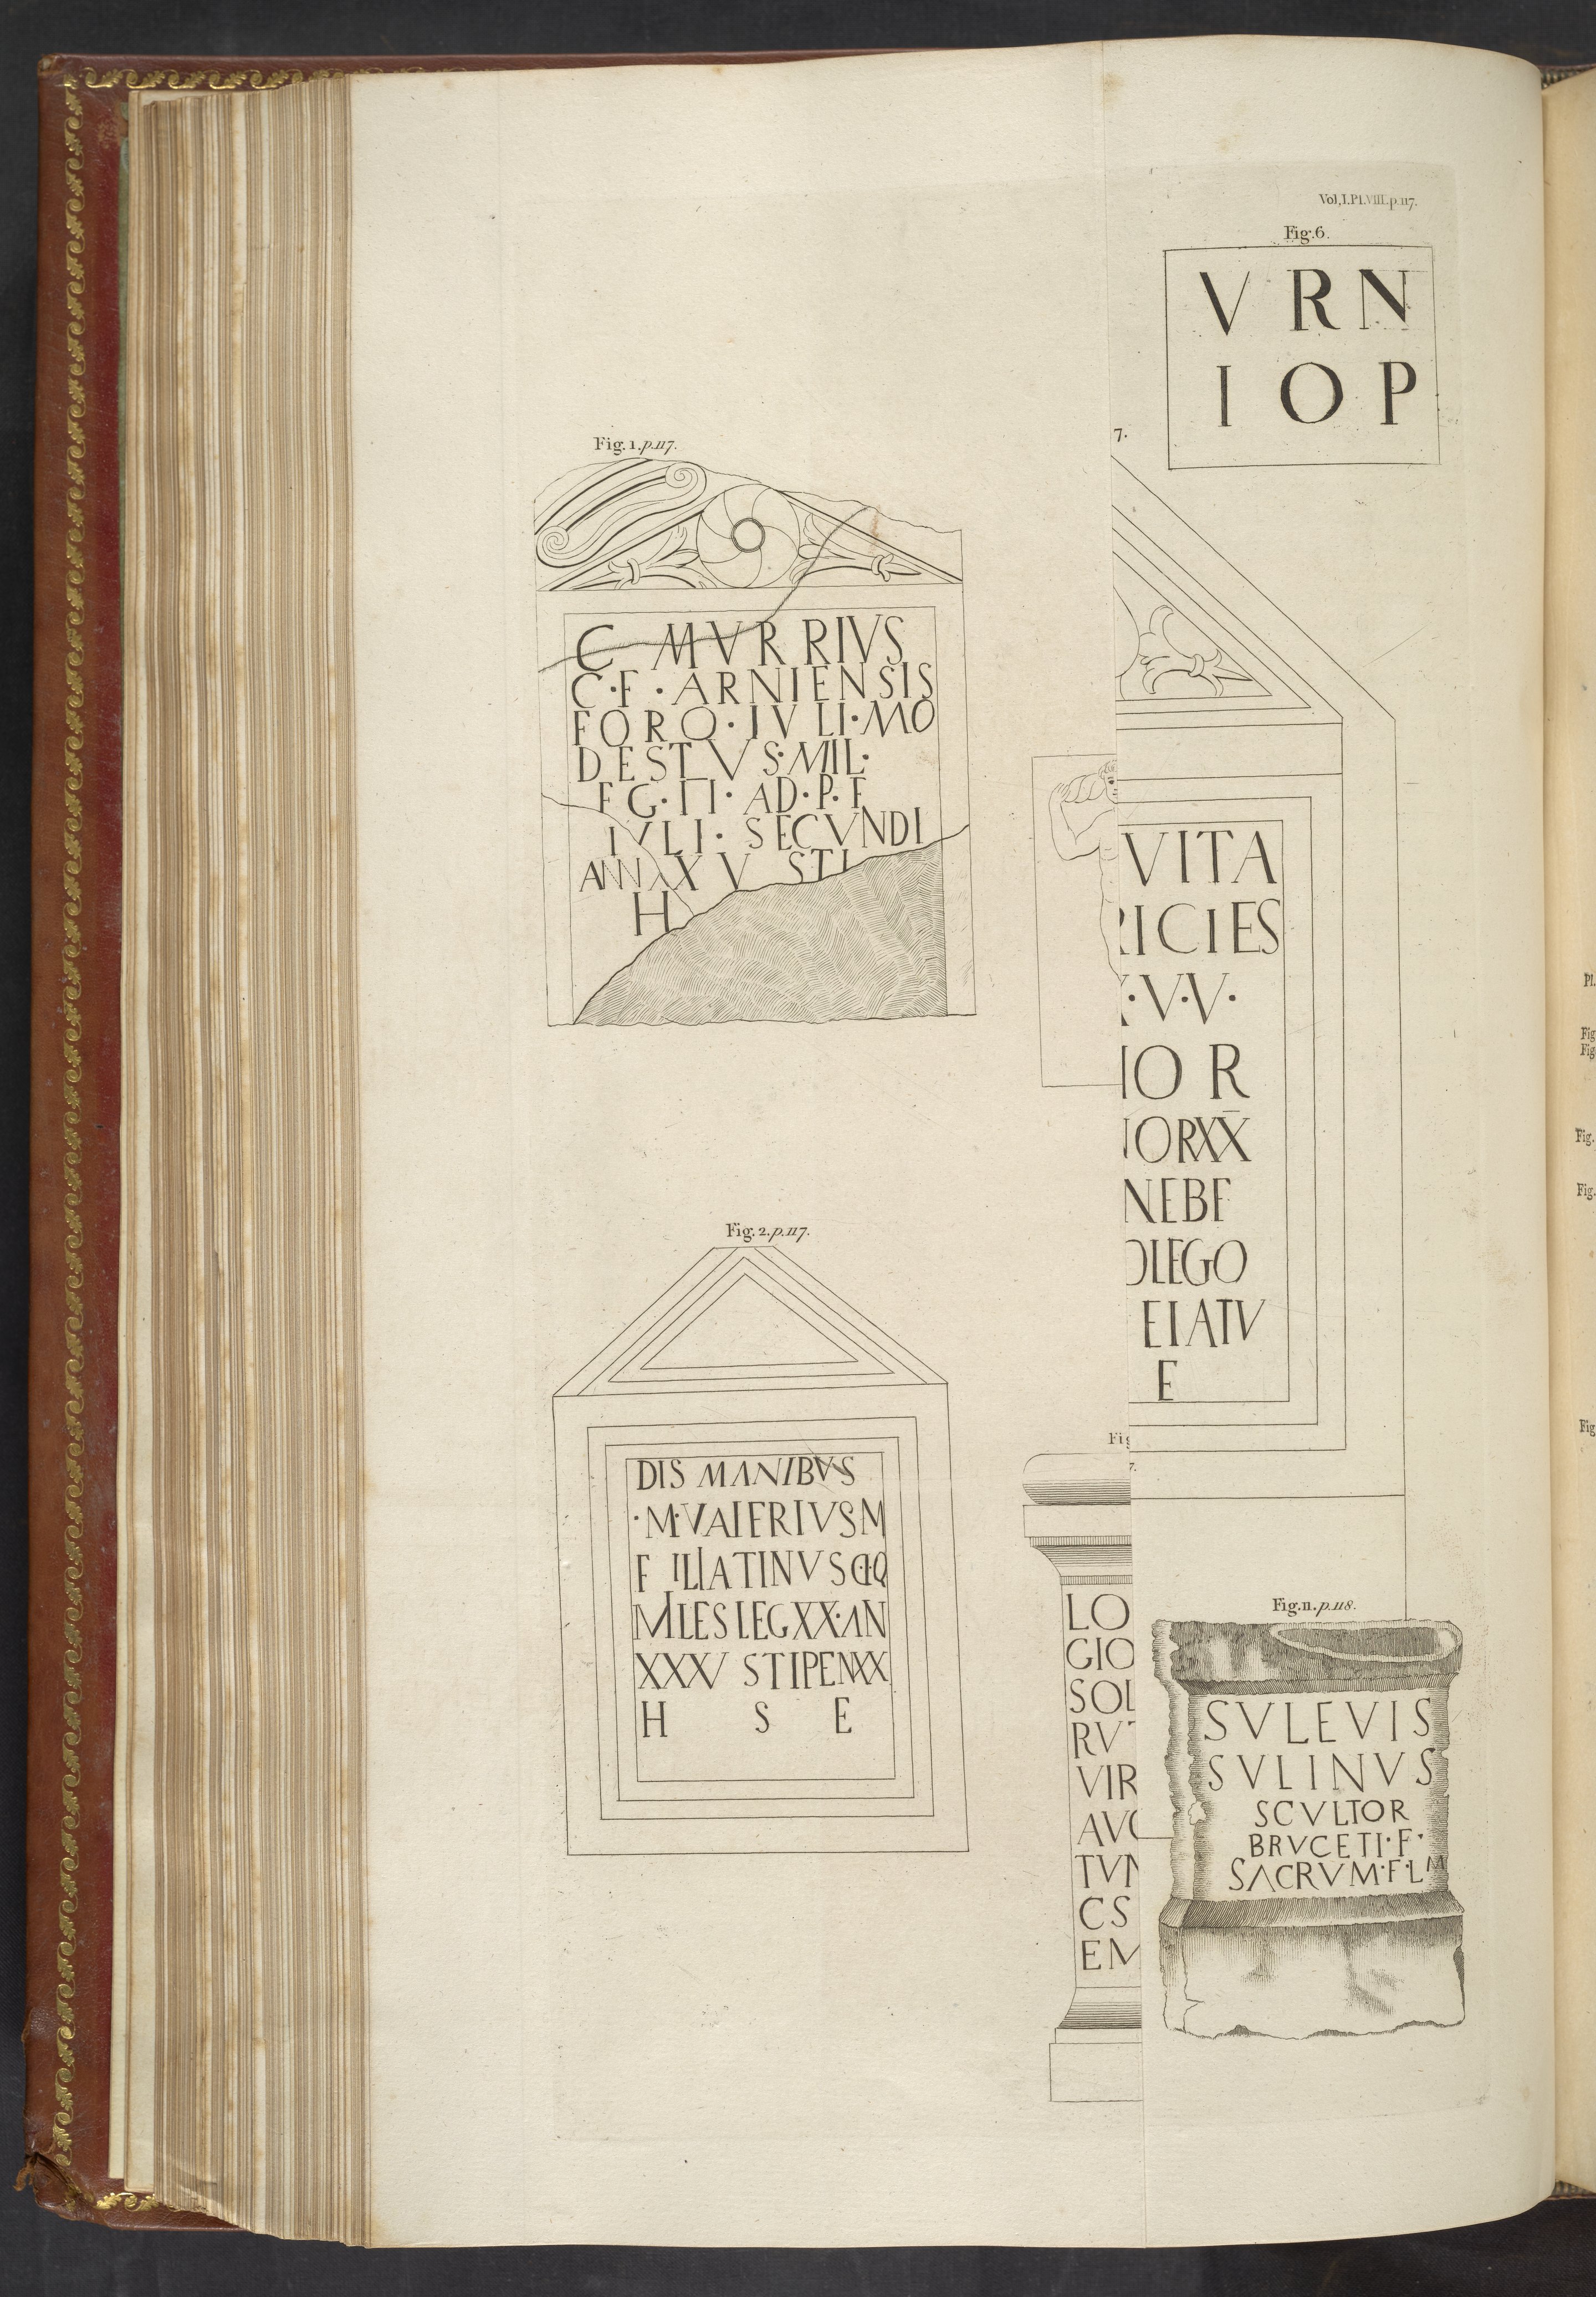 Vol,I.Pl.VIII.p.117.
Fig.6.
V R N
I O P
Fig.1.p.117.
C MVRRIVS
C·F·ARNIENSIS
FORO·IVLI·MO
DESTVS·MIL·
EG·II·AD·P·F
IVLI·SECVNDI
ANN XXV STI
H
7.
VITA
RICIES
·V·V·
IO R
ORXX
NEBF
OLEGO
EIATV
E
Fig.2.p.117.
DIS MANIBVS
·M·VAIERIVSM
F ILIATINVS
MLES LEGXX·AN
XXXV STIPENXX
H S E
Fig
7.
LO
GIO
SOL
RV
VIR
AVG
TVN
CS
EM
Fig.11.p.118.
SVLEVIS
SVLINVS
SCVLTOR
BRVCETI·F·
SACRVM·F·LM
Pl.
Fig
Fig
Fig.
Fig.
Fig